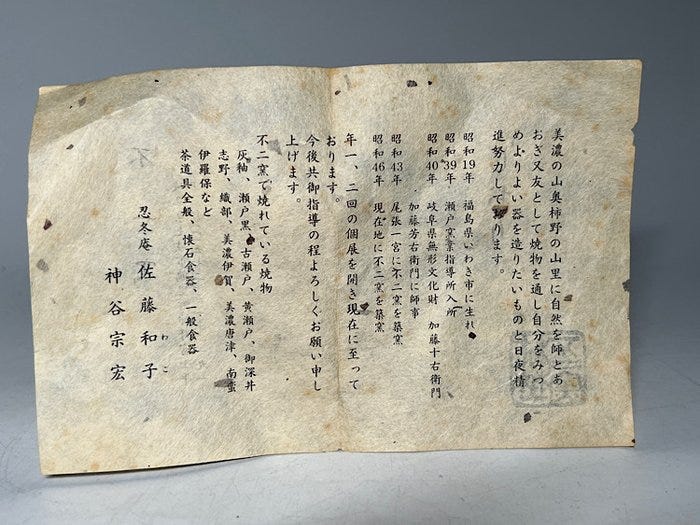 美濃の山奥柿野の山里に自然を師とあ
おぎ又友として焼物を通し自分をみつ
めよりよい器を造りたいものと日夜精
進努力して居ります。
昭和19年 福島県いわき市に生れ
昭和39年 瀬戸窯業指導所入所
昭和40年 岐阜県無形文化財 加藤十右衛門
加藤芳右衛門に師事
昭和43年 尾張一宮に不二窯を築窯
昭和46年 現在地に不二窯を築窯
年一、二回の個展を開き現在に至って
おります。
今後共御指導の程よろしくお願い申し
上げます。
不二窯で焼れている焼物
灰釉、瀬戸黒、古瀬戸、黄瀬戸、御深井
志野、織部、美濃伊賀、美濃唐津、南蛮
伊羅保など
茶道具全般、懐石食器、一般食器
忍冬庵 佐藤和子
わこ
神谷宗宏